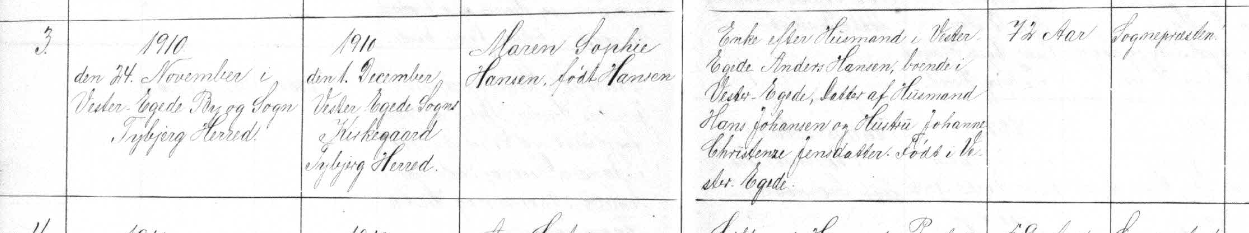 3.
1910
den 24. November i
Vester-Egede By og Sogn
Tybjerg Herred.
1910
den 1. December
Vester Egede Sogns
Kirkegaard
Tybjerg Herred.
Maren Sophie
Hansen, født Hansen
Enke efter Husmand i Vester
Egede Anders Hansen, boende i
Vester-Egede, Datter af Husmand
Hans Johansen og Hustru Johanne
Christenze Jensdatter. Født i Ve-
ster-Egede.
72 Aar
Sognepræsten
4